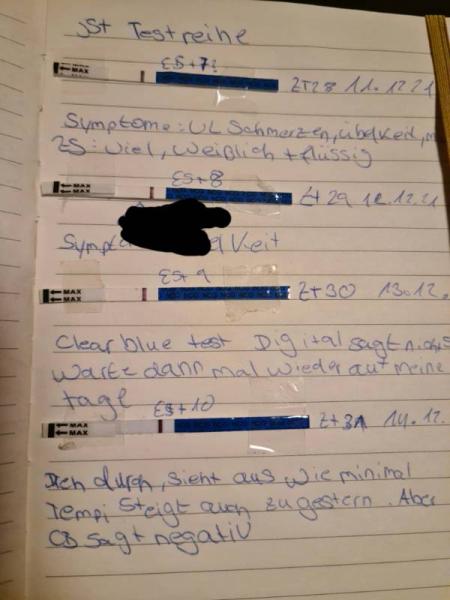 sst Testreihe
ES+7?
MAX
MAX
ZT28 11.12.21
Symptome: UL Schmerzen, übelkeit, m
ZS: viel, weißlich + flüssig
ES+8
MAX
MAX
Zt 29 12.12.21
Symp keit
ES+9
MAX
MAX
Zt30 13.12.
Clearblue test Digital sagt
Warte dann mal wieder auf meine
tage
ES+10
MAX
MAX
Zt31 14.12.
durch, sieht aus wie minimal
Tempi steigt auch zu gestern. Aber
CB sagt negativ